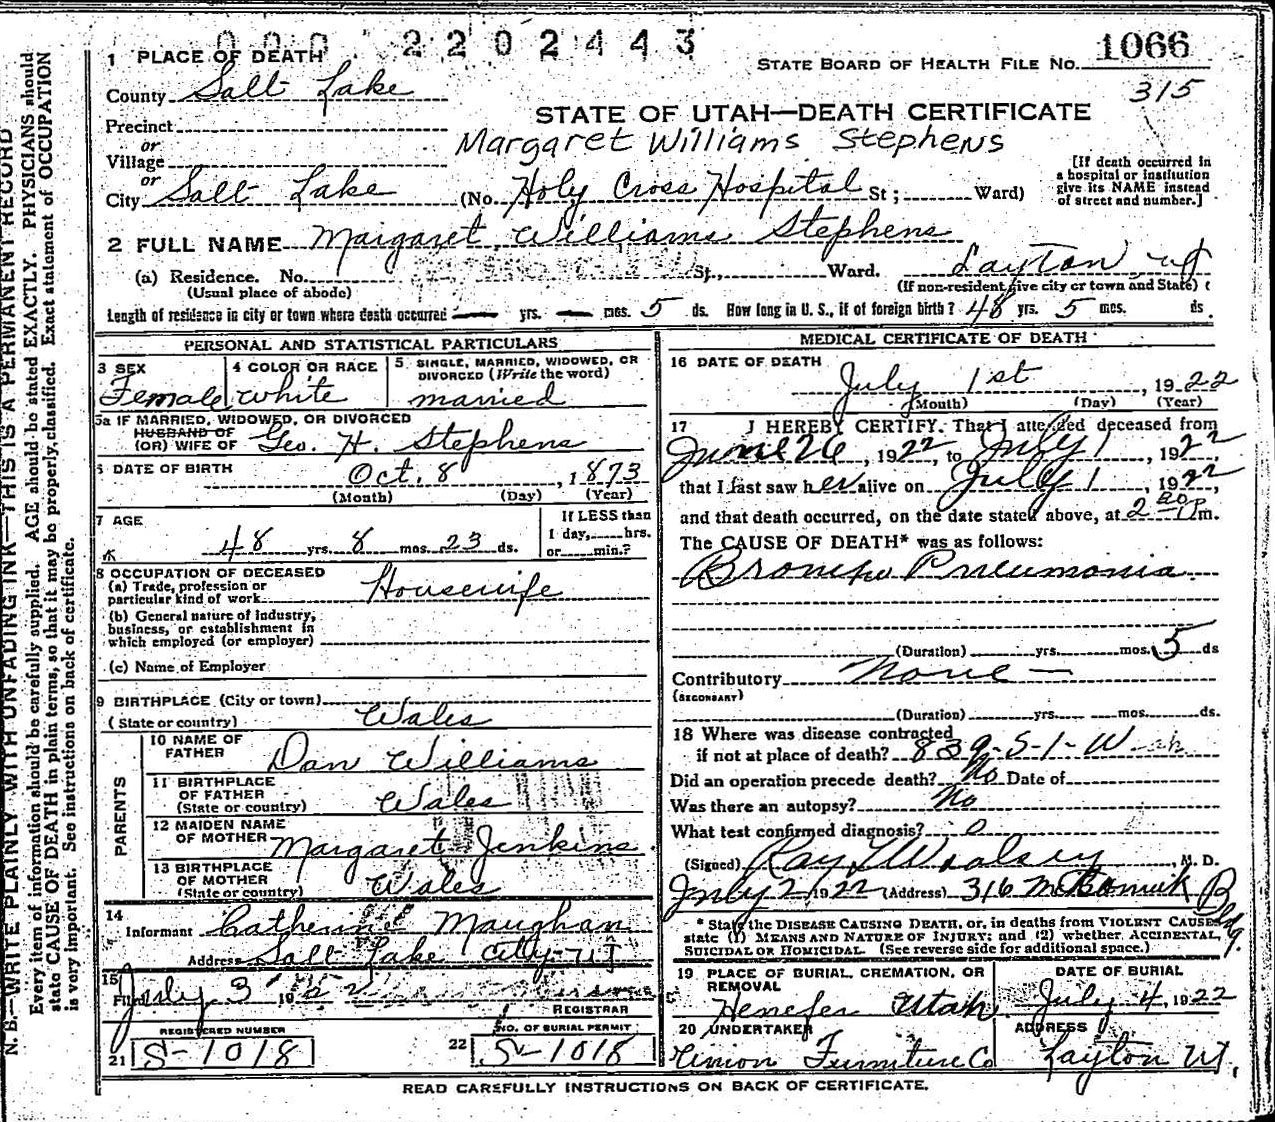 000 2202443
1 PLACE OF DEATH
STATE BOARD OF HEALTH FILE NO. 1066
County Salt Lake
315
STATE OF UTAH—DEATH CERTIFICATE
Precinct
or
Margaret Williams Stephens
Village
or
[If death occurred in
a hospital or institution
give its NAME instead
of street and number.]
City Salt Lake (No. Holy Cross Hospital St; Ward)
2 FULL NAME Margaret Williams Stephens
(a) Residence. No. St., Ward. Layton Ut
(Usual place of abode) (If non-resident give city or town and State)
Length of residence in city or town where death occurred — yrs. — mos. 5 ds. How long in U. S., if of foreign birth? 48 yrs. 5 mos. ds.
PERSONAL AND STATISTICAL PARTICULARS
3 SEX 4 COLOR OR RACE 5 SINGLE, MARRIED, WIDOWED, OR
DIVORCED (Write the word)
Female white married
5a IF MARRIED, WIDOWED, OR DIVORCED
HUSBAND OF
(OR) WIFE OF Geo. H. Stephens
6 DATE OF BIRTH Oct. 8, 1873
(Month) (Day) (Year)
7 AGE
48 yrs. 8 mos. 23 ds.
If LESS than
1 day, hrs.
or min.?
8 OCCUPATION OF DECEASED
(a) Trade, profession or
particular kind of work Housewife
(b) General nature of industry,
business, or establishment in
which employed (or employer)
(c) Name of Employer
9 BIRTHPLACE (City or town)
(State or country) Wales
PARENTS
10 NAME OF
FATHER Dan Williams
11 BIRTHPLACE
OF FATHER
(State or country) Wales
12 MAIDEN NAME
OF MOTHER Margaret Jenkins
13 BIRTHPLACE
OF MOTHER
(State or country) Wales
14
Informant Catherine Maughan
Address Salt Lake City-Ut
15
Filed July 3 1922
REGISTRAR
REGISTERED NUMBER
21 S-1018
NO. OF BURIAL PERMIT
22 S-1018
MEDICAL CERTIFICATE OF DEATH
16 DATE OF DEATH
July 1st, 1922
(Month) (Day) (Year)
17 I HEREBY CERTIFY. That I attended deceased from
June 26, 1922, to July 1, 1922,
that I last saw her alive on July 1, 1922,
and that death occurred, on the date stated above, at 2 00 P.m.
The CAUSE OF DEATH* was as follows:
Broncho Pneumonia
(Duration) yrs. mos. 5 ds
Contributory None —
(SECONDARY)
(Duration) yrs. mos. ds.
18 Where was disease contracted
if not at place of death? 839-S-1-W
Did an operation precede death? No Date of
Was there an autopsy? No
What test confirmed diagnosis? 0
(Signed) Ray T Woolsey, M. D.
July 2, 1922 (Address) 316 McCornick Bldg.
* State the DISEASE CAUSING DEATH, or, in deaths from VIOLENT CAUSES,
state (1) MEANS AND NATURE OF INJURY; and (2) whether ACCIDENTAL,
SUICIDAL OR HOMICIDAL. (See reverse side for additional space.)
19 PLACE OF BURIAL, CREMATION, OR
REMOVAL
Henefer Utah
DATE OF BURIAL
July 4, 1922
20 UNDERTAKER
Union Furniture Co
ADDRESS
Layton Ut.
READ CAREFULLY INSTRUCTIONS ON BACK OF CERTIFICATE.
N. B.—WRITE PLAINLY WITH UNFADING INK—THIS IS A PERMANENT RECORD
Every item of information should be carefully supplied. AGE should be stated EXACTLY. PHYSICIANS should
state CAUSE OF DEATH in plain terms, so that it may be properly classified. Exact statement of OCCUPATION
is very important. See instructions on back of certificate.